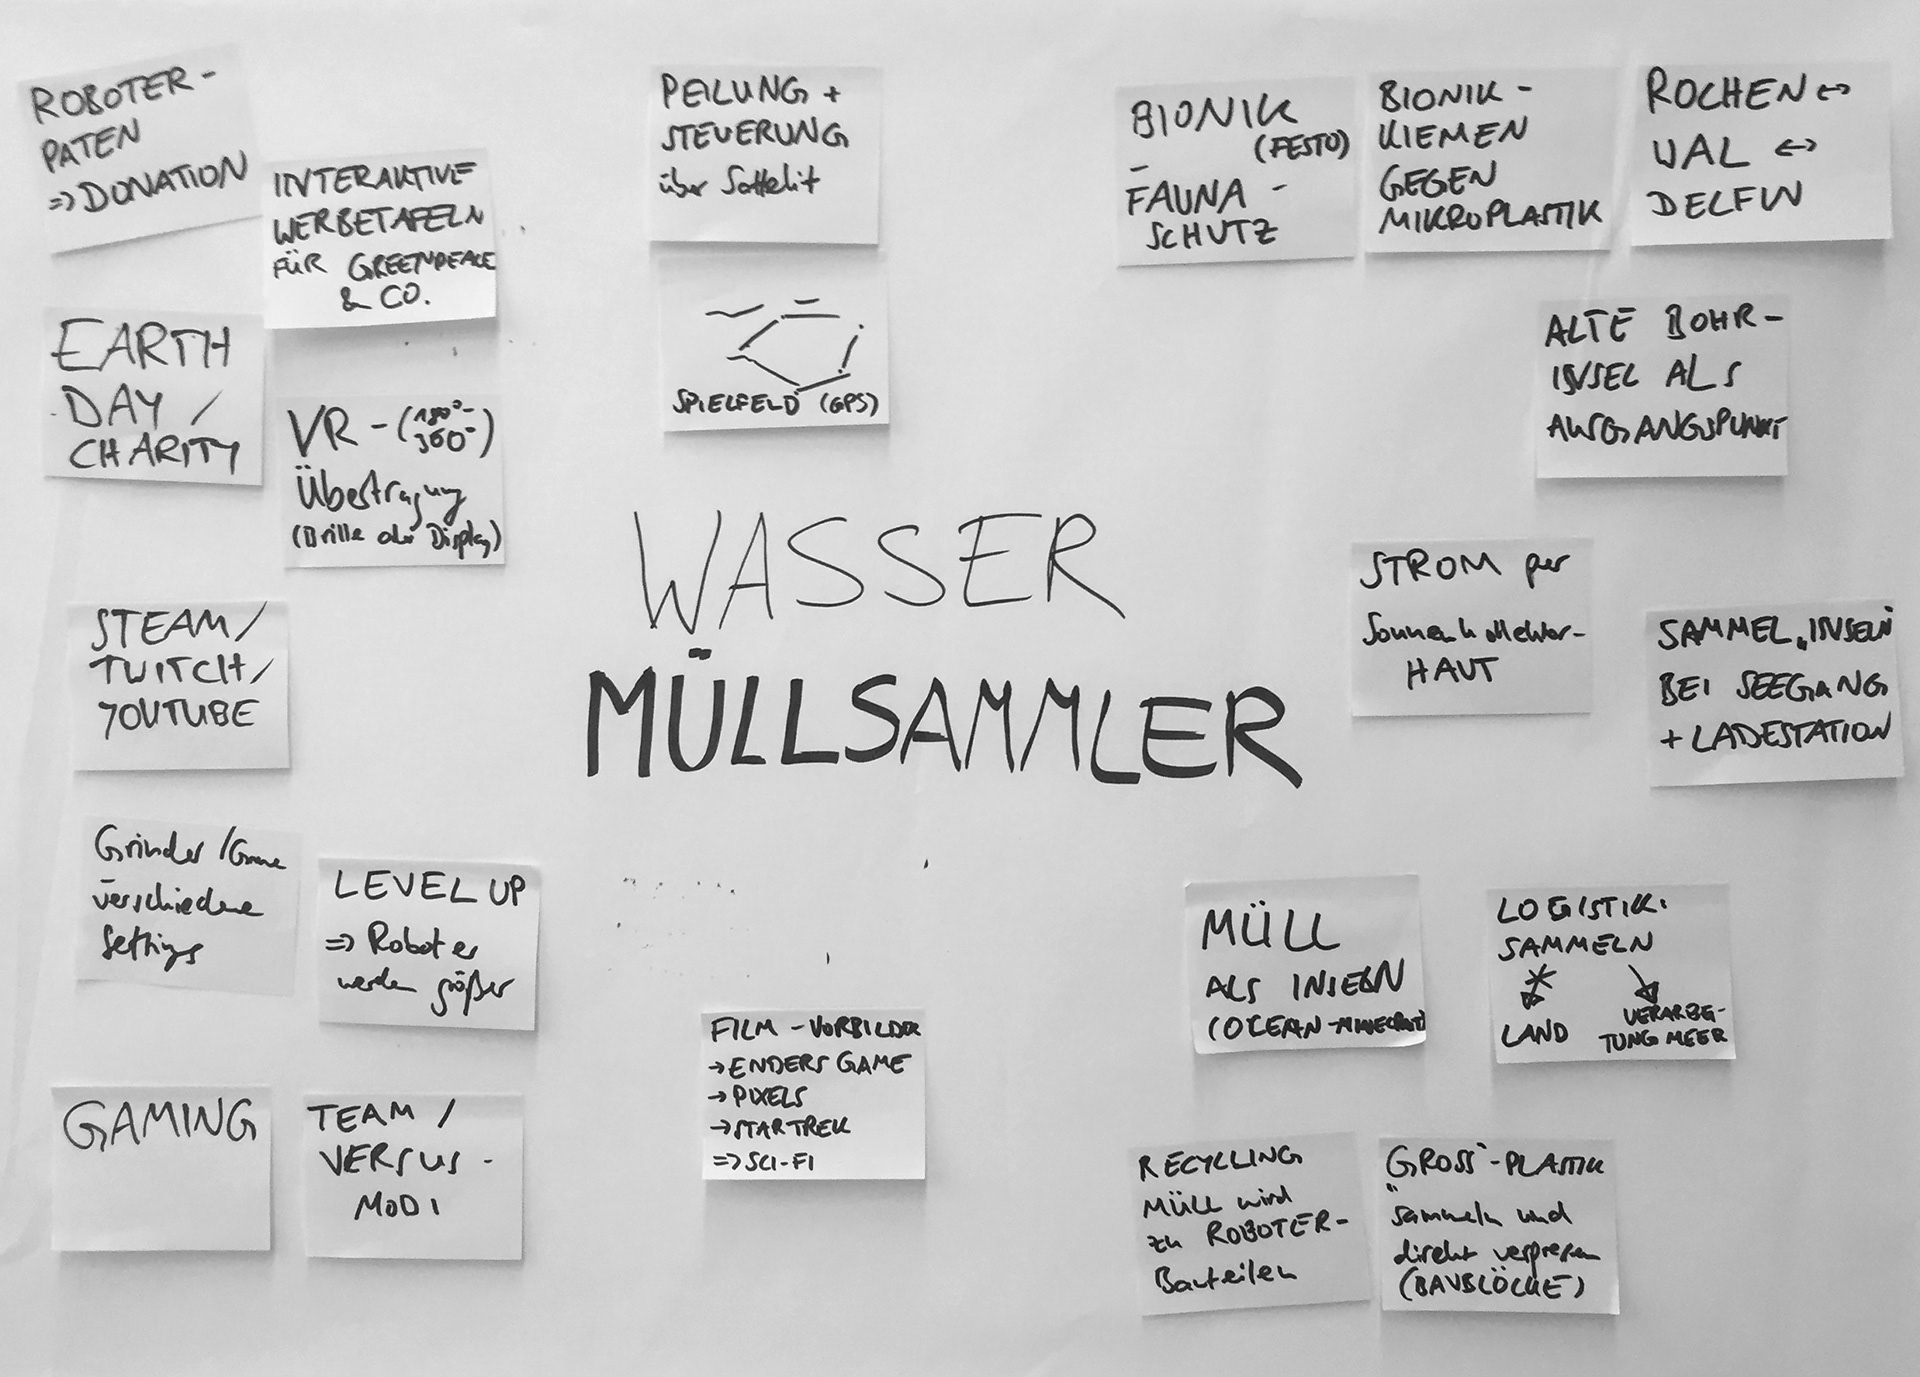 ROBOTER-
PATEN
=> DONATION
INTERAKTIVE
WERBETAFELN
FÜR GREENPEACE
& CO.
EARTH
DAY /
CHARITY
VR - (180°-
360°-)
Übertragung
(Brille oder Display)
STEAM/
TWITCH/
YOUTUBE
Grinder/Game
verschiedene
Settings
LEVEL UP
=> Roboter
werden größer
GAMING
TEAM /
VERSUS-
MODI
PEILUNG +
STEUERUNG
über Sattelit
SPIELFELD (GPS)
WASSER
MÜLLSAMMLER
FILM - VORBILDER
→ ENDERS GAME
→ PIXELS
→ STARTREK
=> SCI-FI
BIONIK
(FESTO)
-
FAUNA-
SCHUTZ
BIONIK-
KIEMEN
GEGEN
MIKROPLASTIK
ROCHEN <->
WAL <->
DELFIN
ALTE BOHR-
INSEL ALS
AUSGANGSPUNKT
STROM per
Sonnenkollektor-
HAUT
SAMMEL„INSELN"
BEI SEEGANG
+ LADESTATION
MÜLL
ALS INSELN
(OCEAN-MINECRAFT)
LOGISTIK:
SAMMELN
LAND
VERARBEI-
TUNG MEER
RECYCLING
MÜLL wird
zu ROBOTER-
Bauteilen
GROSS"-PLASTIK
"sammeln und
direkt verpressen
(BAUBLÖCKE)